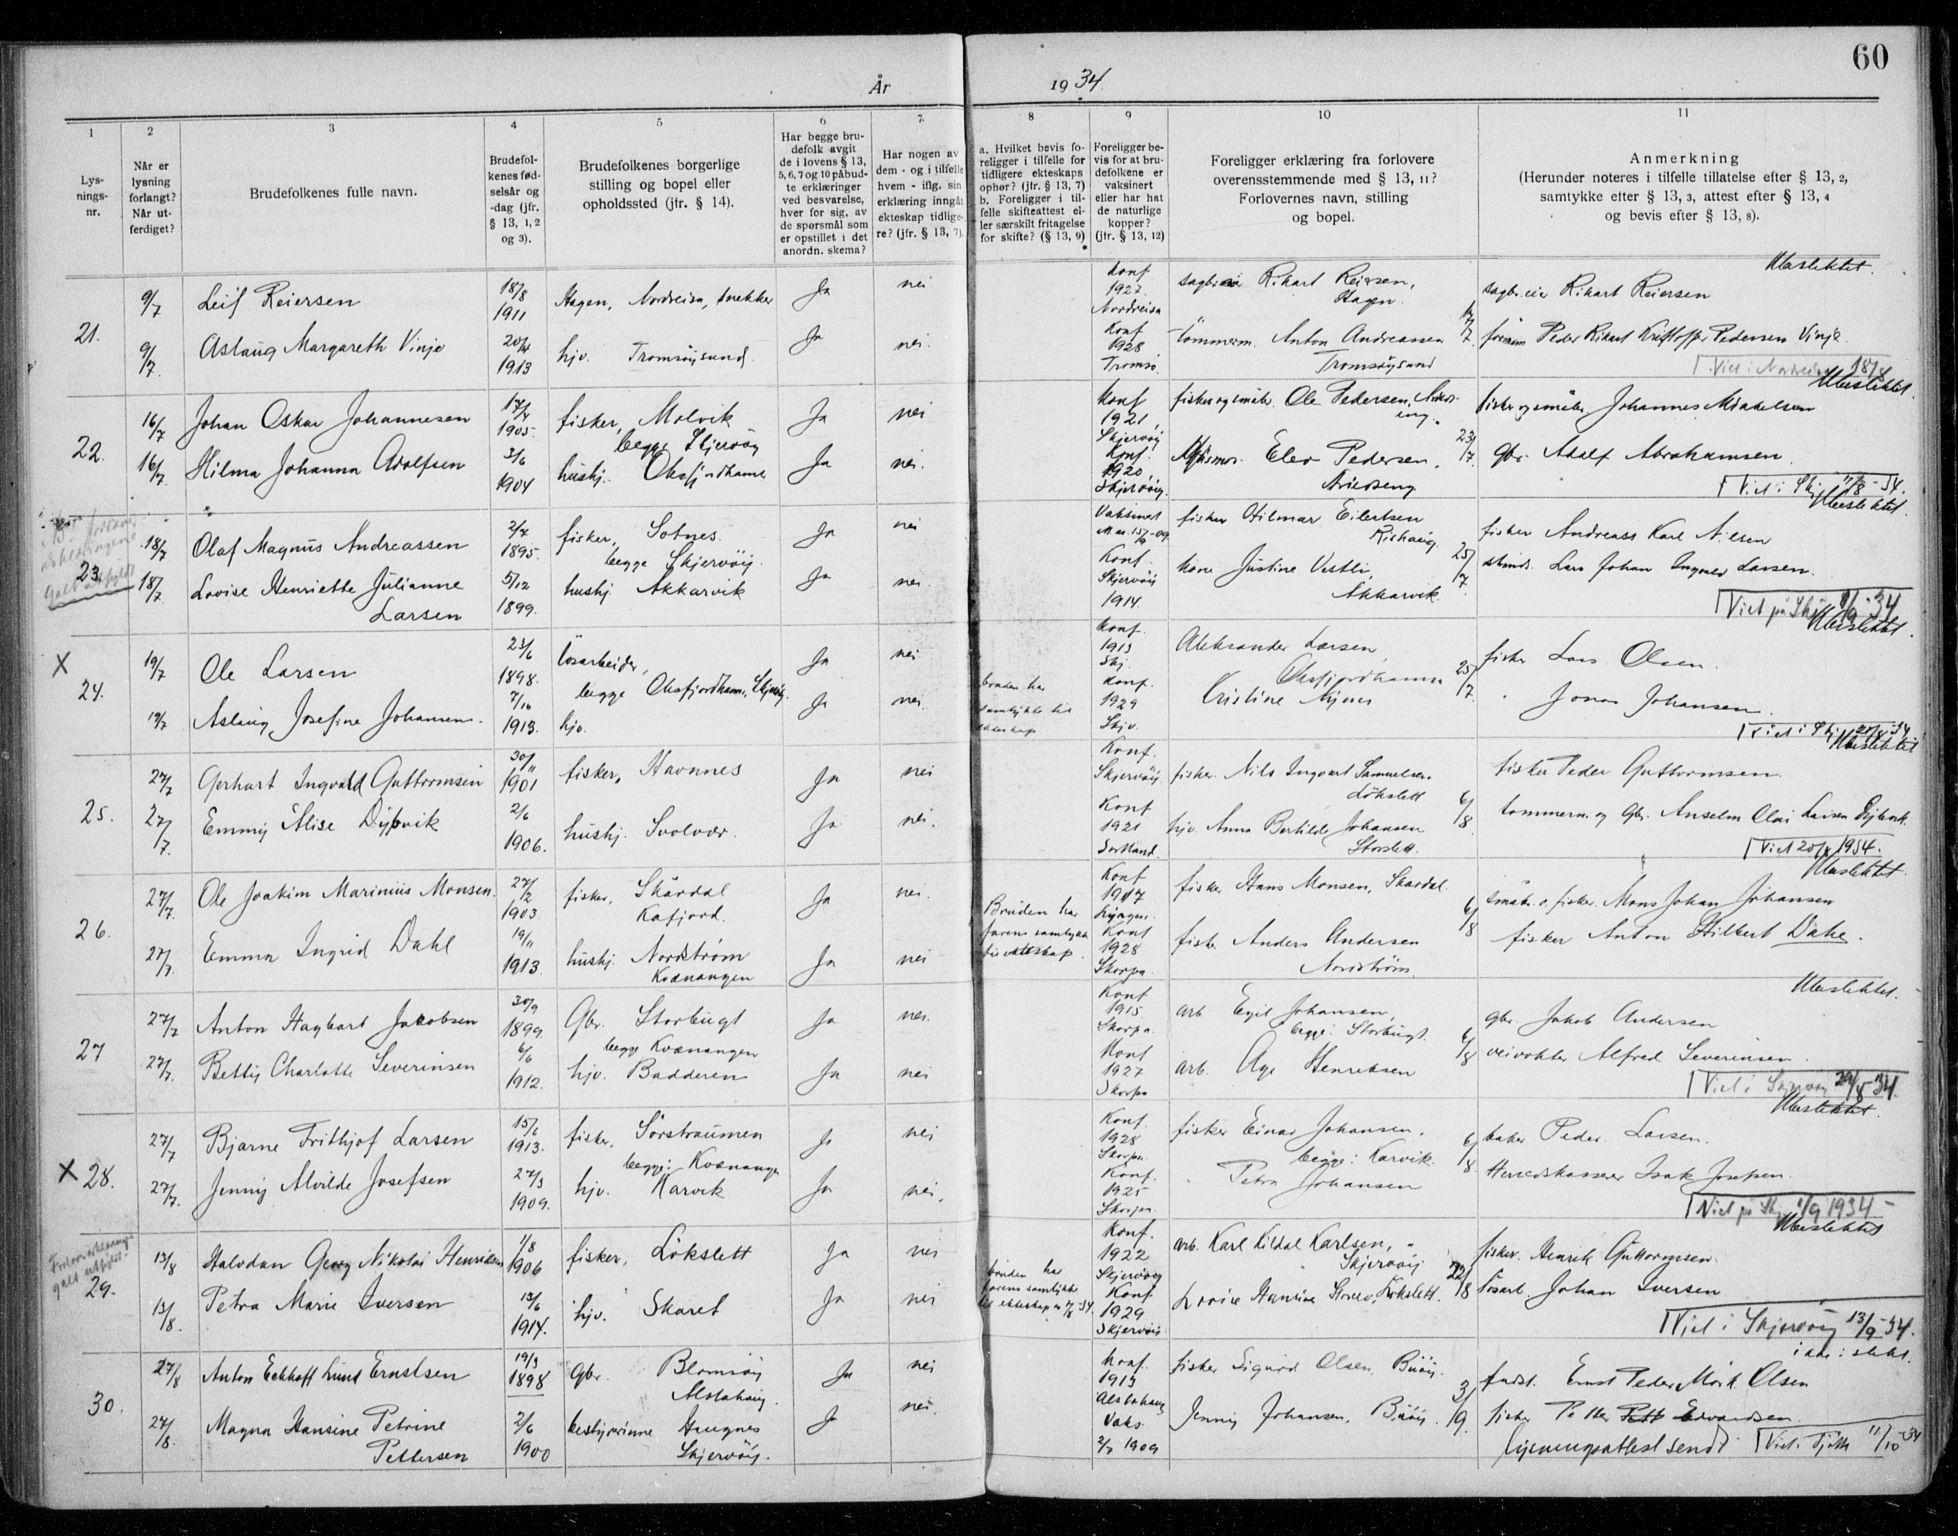 60
År 1934
1 2 3 4 5 6 7 8 9 10 11
Lysningsnr.
Når er lysning forlangt? Når utferdiget?
Brudefolkenes fulle navn.
Brudefolkenes fødselsår og -dag (jfr. § 13, 1, 2 og 3).
Brudefolkenes borgerlige stilling og bopel eller opholdssted (jfr. § 14).
Har begge brudefolk avgit de i lovens § 13, 5, 6, 7 og 10 påbudte erklæringer ved besvarelse, hver for sig, av de spørsmål som er opstillet i det anordn. skema?
Har nogen av dem - og i tilfelle hvem - iflg. sin erklæring inngått ekteskap tidligere? (jfr. § 13, 7).
a. Hvilket bevis foreligger i tilfelle for tidligere ekteskaps ophør? (jfr. § 13, 7)
b. Foreligger i tilfelle skifteattest eller særskilt fritagelse for skifte? (§ 13, 9)
Foreligger bevis for at brudefolkene er vaksinert eller har hat de naturlige kopper? (jfr. § 13, 12)
Foreligger erklæring fra forlovere overensstemmende med § 13, 11? Forlovernes navn, stilling og bopel.
Anmerkning
(Herunder noteres i tilfelle tillatelse efter § 13, 2, samtykke efter § 13, 3, attest efter § 13, 4 og bevis efter § 13, 8).
Ubeslektet.
21. 9/7 Leif Reiersen 18/8 1911 Hagen, Nordreisa, snekker Ja nei Konf 1927 Nordreisa Rikart Reiersen, Hagen Rikart Reiersen
9/7 Aslaug Margareth Vinje 20/4 1913 hjv. Tromsøysund Ja nei. Konf 1928 Tromsø. Tømmerm. Anton Andreassen Tromsøysund 7. Peder Rikart Kristoffer Pedersen Vinje
Viet i Nordreisa 18/8
Ubeslektet.
22. 16/7 Johan Oskar Johannesen 17/7 1905. fisker, Molvik Ja nei Konf 1921, Skjervøy fisker og småbr. Ole Pedersen, fisker og småbr Johannes Mikkelsen
begge Skjervøy
16/7 Hilma Johanna Adolfsen 3/6 1904 hushj. Oksfjordhamn Ja nei. Konf. 1920, Skjervøy. Elev Pedersen, 23/7. gbr. Adolf Abrahamsen
Viet i Skj 11/8 - 34.
Ubeslektet.
23. 18/7 Olaf Magnus Andreassen 2/7 1895. fisker, Sotnes. Ja nei Vaksinert fisker Hilmar Eilertsen fisker Andreas Karl Nilsen
begge Skjervøy.
18/7. Lovise Henriette Julianne Larsen 5/12 1899. hushj. Akkarvik Ja nei Konf. Skjervøy 1914. kone Justine Vestli, Akkarvik 25/7. Lars Johan Ingvald Larsen.
Viet på Skj 8/9 - 34
Ubeslektet.
X 24. 19/7 Ole Larsen 23/6 1898. løsarbeider, Ja nei Konf. 1913 Skj. Aleksander Larsen, fisker Lars Olsen.
begge Oksfjordhamn, Skjervøy. Oksfjordhamn 25/7
19/7 Aslaug Josefine Johansen. 1913. hjv. Ja nei. bruden har samtykke til ekteskap Konf. 1929 Skjv. Kristine " Jonas Johansen.
Ubeslektet
25. 27/7 Gerhart Ingvald Guttormsen 30/11 1901 fisker, Havnnes Ja nei Konf. Skjervøy. fisker. Nils Ingvart Samuelsen. Løkslett fisker Peder Guttormsen.
27/7. Emmy Alise Dybvik 2/6 1906. hushj. Svolvær. Ja nei. Konf 1921 Sortland. hjv. Anna Bertilde Johansen Storslett. 6/8 tømmerm. og gbr. Anselm Olai Larsen
Ubeslektet.
26. 27/7. Ole Joakim Marinius Monsen. 27/2 1903. fisker, Skårdal Kåfjord. Ja nei. Konf 1917 Lyngen. fisker Hans Monsen, Skardal. småbr. o. fisker. Mons Johan Johansen
27/7. Emma Ingrid Dahl 19/11 1913. hushj. Nordstrøm Kvænangen Ja nei Bruden har farens samtykke til ekteskap. Konf 1928 Skorpa. fisker Anders Andersen Nordstrøm. 6/8 fisker Anton Hilbert Dahl.
Ubeslektet.
27 27/7 Anton Hagbart Jakobsen 30/9 1899. Gbr. Storbugt Ja nei. Konf 1915 Skorpa. arb Egil Johansen, gbr. Jakob Andersen
begge Kvænangen begge: Storbugt. 6/8
27/7. Betty Charlotte Severinsen 6/6 1912. hjv. Badderen Ja nei Konf 1927 Skorpa arb. Age Henriksen veivokter Alfred Severinsen.
Viet i Skjervøy 29/8 - 34.
Ubeslektet.
X 28. 27/7 Bjarne Frithjof Larsen 15/6 1913. fisker, Sørstraumen Ja nei Konf. 1928 Skorpa. fisker Einar Johansen. baker Peder Larsen.
begge: Kvænangen begge: Karvik. 6/8
27/7. Jenny Alvilde Josefsen 27/3 1909. hjv. Karvik Ja nei. Konf. 1925 Skorpa. Petra Johansen Herredskasserer Isak Josefsen.
Viet på Skj 1/9 1934 -
Ubeslektet
29. 13/8 Halvdan Georg Nikolai Henriksen 1/8 1906 fisker, Løkslett Ja nei Konf. 1922 Skjervøy arb. Karl Kildal Karlsen, Skjervøy fisker. Henrik Guttormsen.
13/8. Petra Marie Iversen 13/6 1914. hjv. Skaret Ja nei bruden har farens samtykke til ekteskap Konf 1929 Skjervøy Lovise Hansine Løkslett. 22/8 løsarb. Johan Iversen
Viet i Skjervøy 13/9 - 34.
30. 27/8 Anton Eckhoff Lund Ernstsen 19/3 1898 gbr. Blomsøy Alstahaug. Ja nei Konf. 1913 Alstahaug fisker Sigurd Olsen, fadt. Ernst Peder Mørk Olsen
27/8. Magna Hansine Petrine Pettersen 2/6 1900 bestyrerinne Haugnes Skjervøy. Ja nei. Vaks. 2/7 1909 Jenny Johansen, 3/9. fisker Petter Edvardsen.
lysningsattest sendt Viet i Tjøtta 11/10 - 34